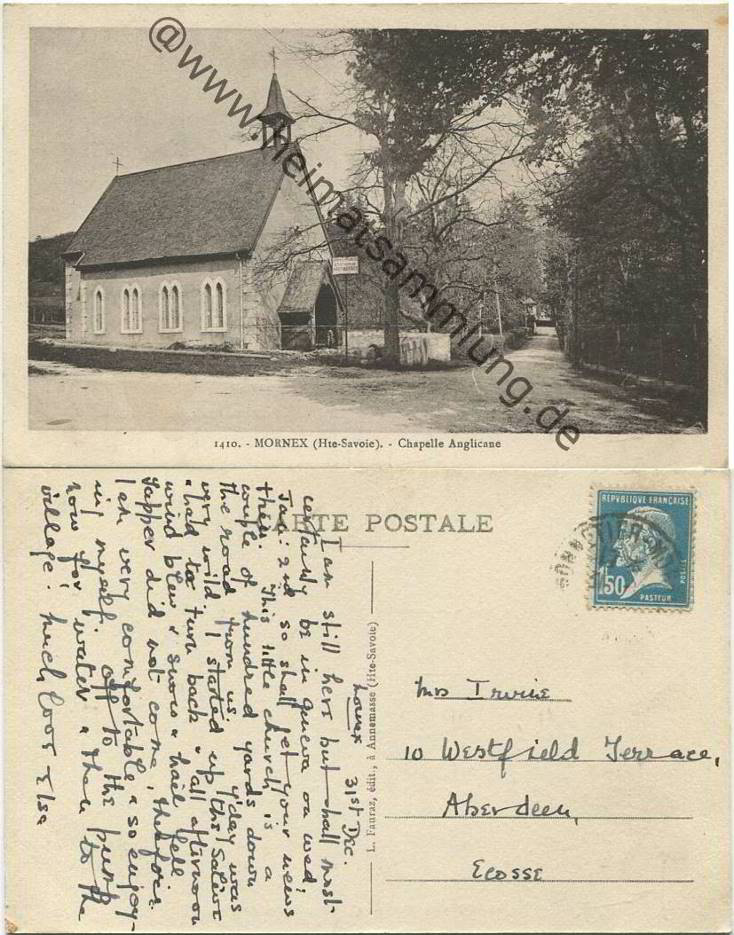 @www.heimatsammlung.de
1410. - MORNEX (Hte-Savoie). - Chapelle Anglicane
CARTE POSTALE
RÉPUBLIQUE FRANÇAISE
1F50
POSTES
PASTEUR
L. Fauraz, édit., à Annemasse (Hte-Savoie)
31st Dec.
I am still here but shall most
certainly be in Geneva on Wed,
Jan: 2nd so shall get your news
then. This little church is a
couple of hundred yards down
the road from us. Y'day was
very wild. I started up the Salève
& had to turn back & all afternoon
wind blew & snow & hail fell
Yapper did not come, therefore
I am very comfortable & so enjoy-
ing myself. Off to the pump
now for water & then to the
village. Much love Elsa
Mrs Irvine
10 Westfield Terrace,
Aberdeen,
Ecosse